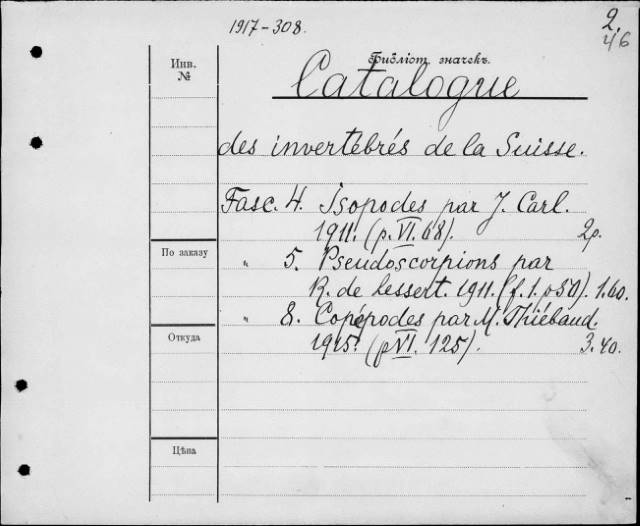 1917-308.
2.
46
Инв.
№
Библіот. значекъ.
Catalogue
des invertébrés de la Suisse.
Fasc. 4. Isopodes par J. Carl.
1911. (p. VI. 68). 2р.
По заказу
" 5. Pseudoscorpions par
R. de Lessert. 1911. (f. 1. p 50). 1.60.
" 8. Copépodes par M. Thiébaud.
Откуда
1915. (p VI. 125). 3.40.
Цѣна